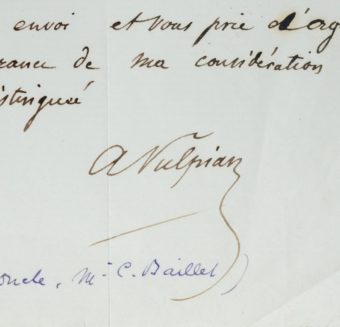 envoi et vous prie d'ag
rance de ma considération
istingué
A Vulpian
oncle, Mr C. Baillet